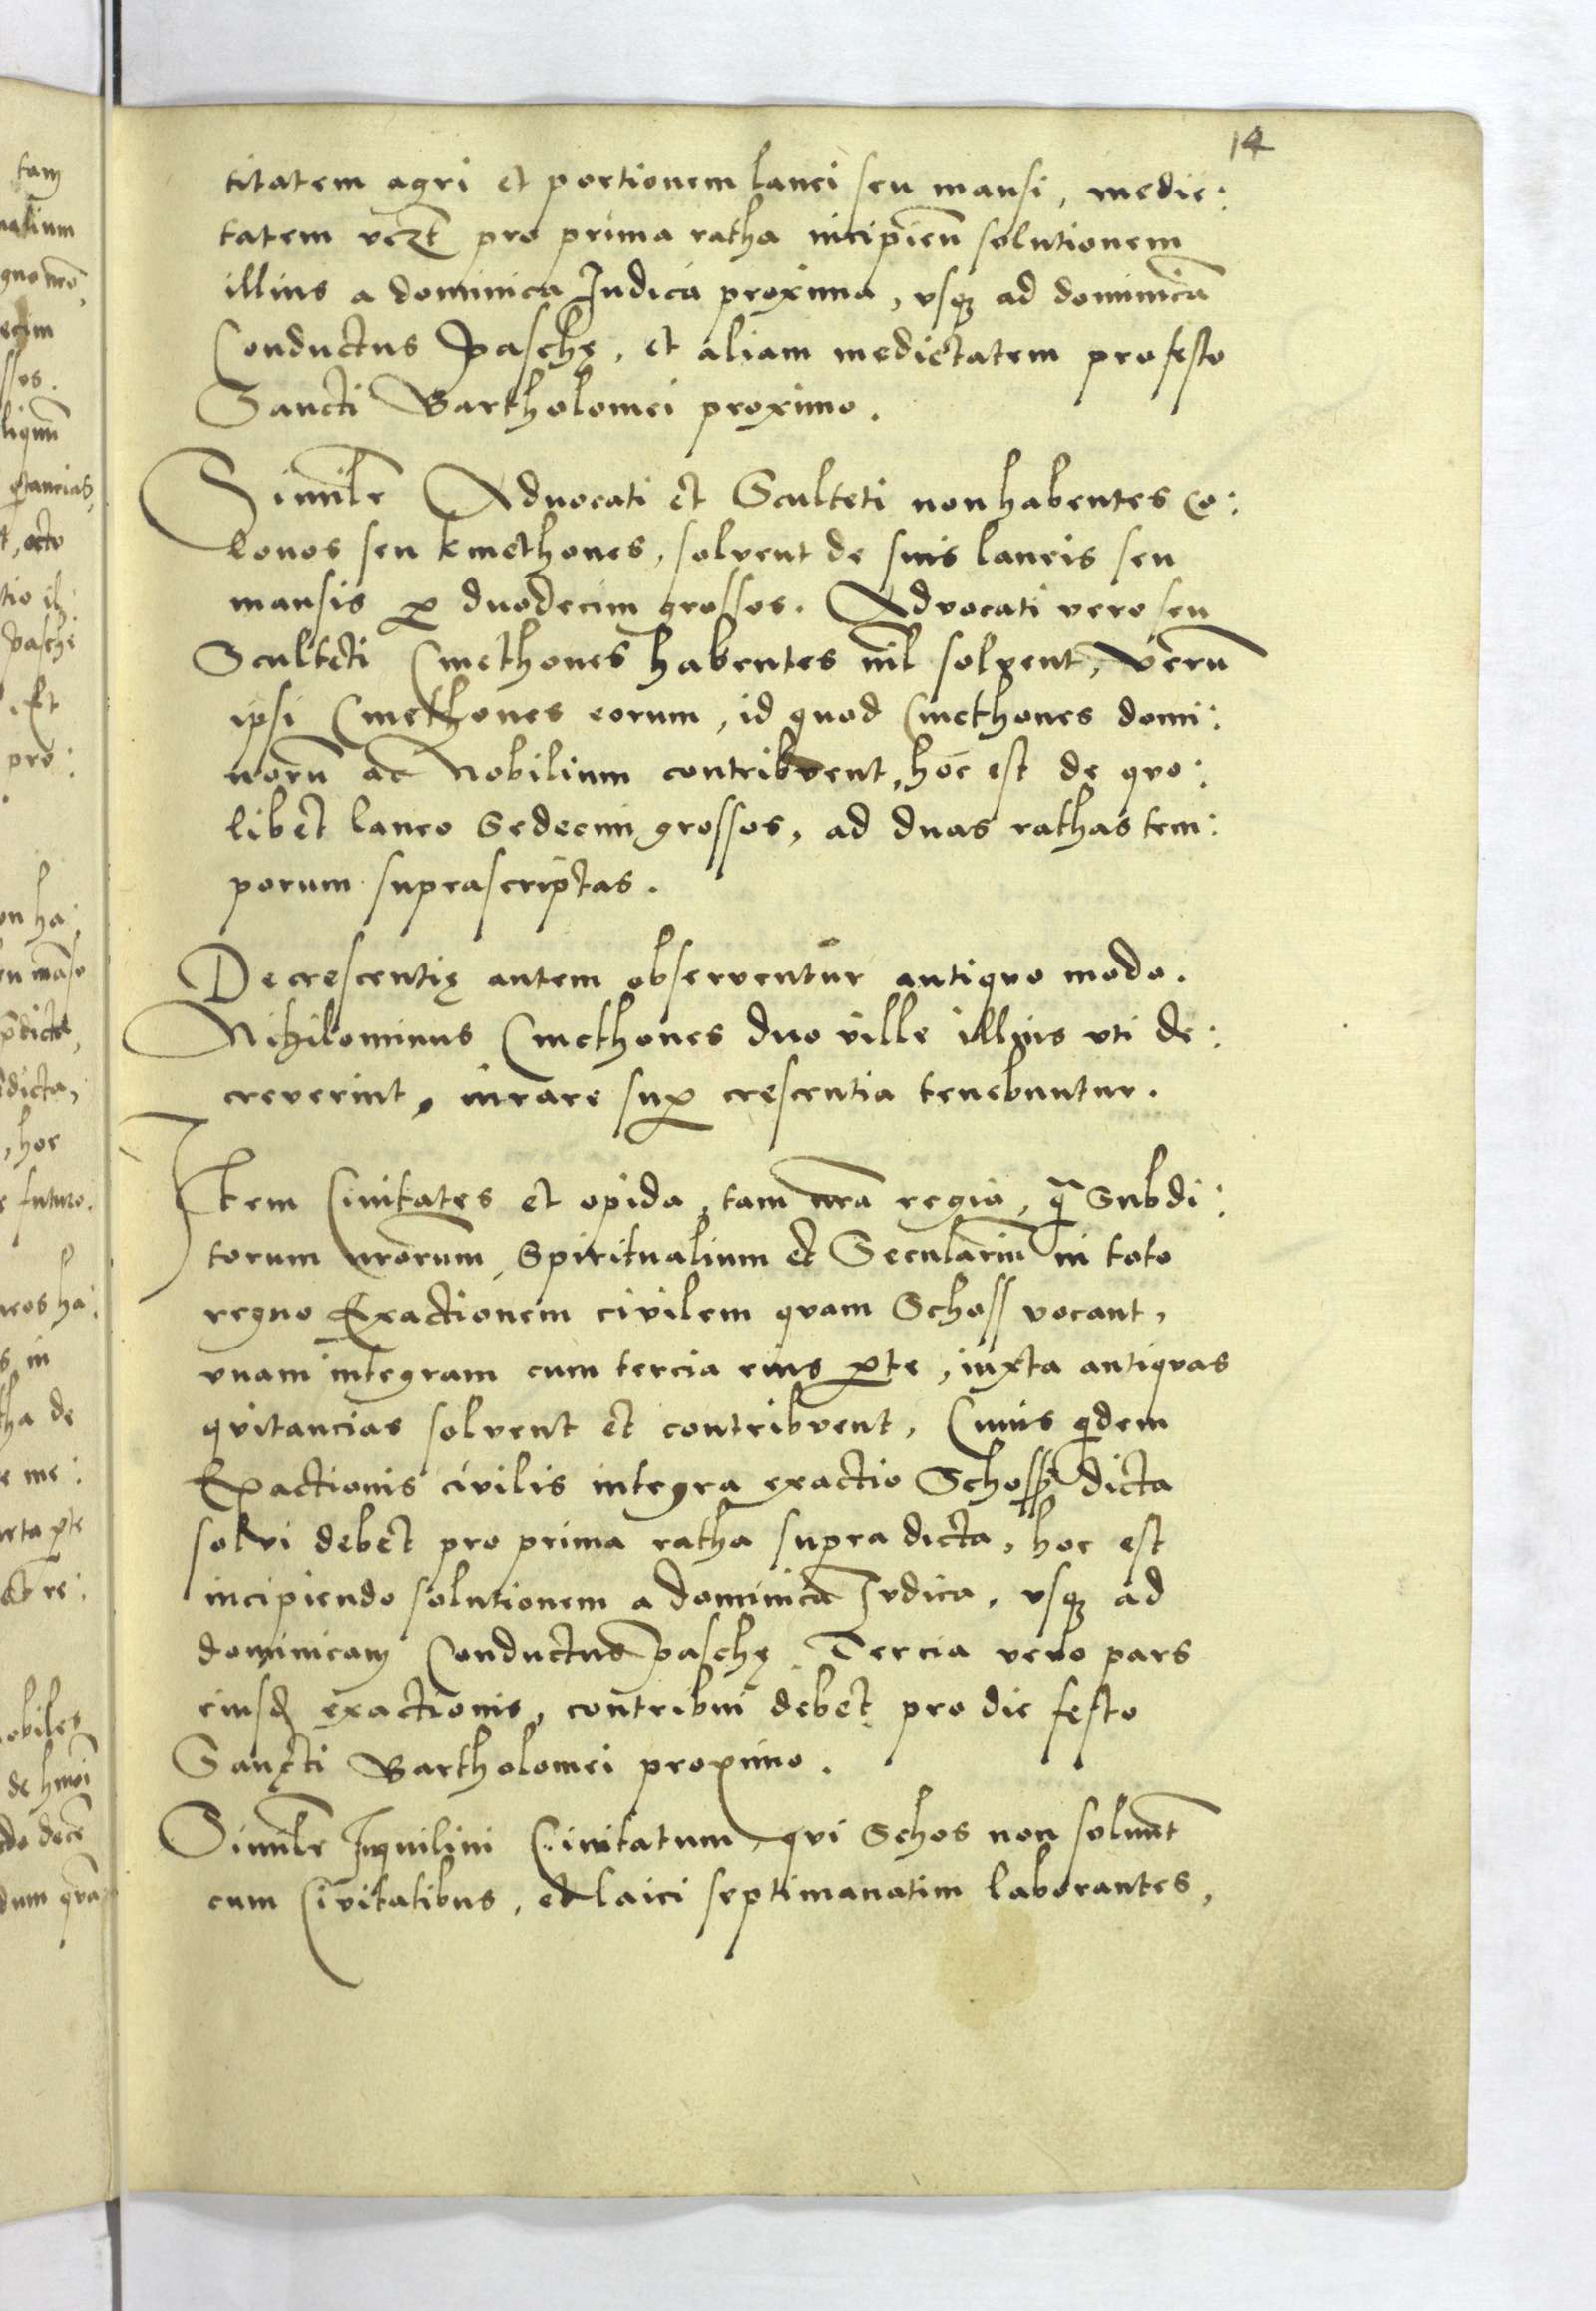 14
titatem agri et portionem lanei seu mansi, medie:
tatem vero pro prima ratha incipien̄ solutionem
illius a dominica Iudica proxima, vsq̨ ad dominicā
Conductus Paschę, et aliam medietatem pro festo
Sancti Bartholomei proximo.
Similr̄ Aduocati et Sculteti non habentes co:
lonos seu kmethones, solvent de suis laneis seu
mansis ꝑ duodecim grossos. Advocati vero seu
Sculteti Cmethones habentes nīl solvent, Verū
ipsi Cmethones eorum, id quod Cmethones domi:
norū ac Nobilium contribvent, hoc est de qvo:
libet laneo Sedecim grossos, ad duas rathas tem:
porum suprascriptas.
Decrescentię autem observentur antiqvo modo.
Nihilominus Cmethones duo ville illius vti de:
creverint, iurare suꝑ crescentia tenebuntur.
Item Ciuitates et opida, tam nr̄a regia, q̄ Subdi:
torum nr̄orum, Spiritualium et Seculariū in toto
regno Exactionem civilem qvam Schoss vocant,
vnam integram cum tercia eius ꝑte, iuxta antiqvas
qvitancias solvent et contribvent, Cuius qdem
Exactionis civilis integra exactio Schoss dicta
solvi debet pro prima ratha supra dicta, hoc est
incipiendo solutionem a dominica Ivdica, vsq̨ ad
dominicam Conductus paschę Tercia vero pars
eiusd exactionis, contribui debet pro die festo
Sancti Bartholomei proximo.
Similr̄ Inquilini Civitatum, qvi Schos non solunt
cum Civitatibus, et laici septimanatim laborantes,
tam
nalium
gno nrō,
ecim
ssos.
liqum
qtancias,
t, octo
tio il:
Paschę
. Et
pro:
on ha:
eu māso
p̄dicta,
edicta,
, hoc
e futuro.
neos ha:
s in
tha de
e me:
rta ꝑte
re:
obiles
de hmōi
do decē
dum qua